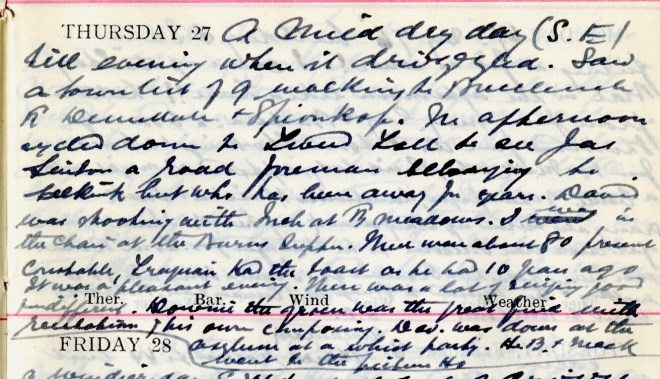 THURSDAY 27 A Mild dry day (S.E)
till evening when it drizzled. Saw
a town list of 9 walking to Buccleuch
R & Spionkop. In afternoon
cycled down to to see Jas
a road foreman belonging to
Selkirk but who has been away for years. David
was shooting with at B meadows. I was in
the Chair at the Burns Supper. There were about 80 present
Constable, Traquair had the toast as he had 10 years ago
It was a pleasant evening. There was a lot of singing good
Ther. Bar. Wind Weather
& indifferent. the green was the great with
recitations of his own composing. Dav. was down at the
FRIDAY 28 asylum at a whist party. H.B. &
went to the pictures
a windier day